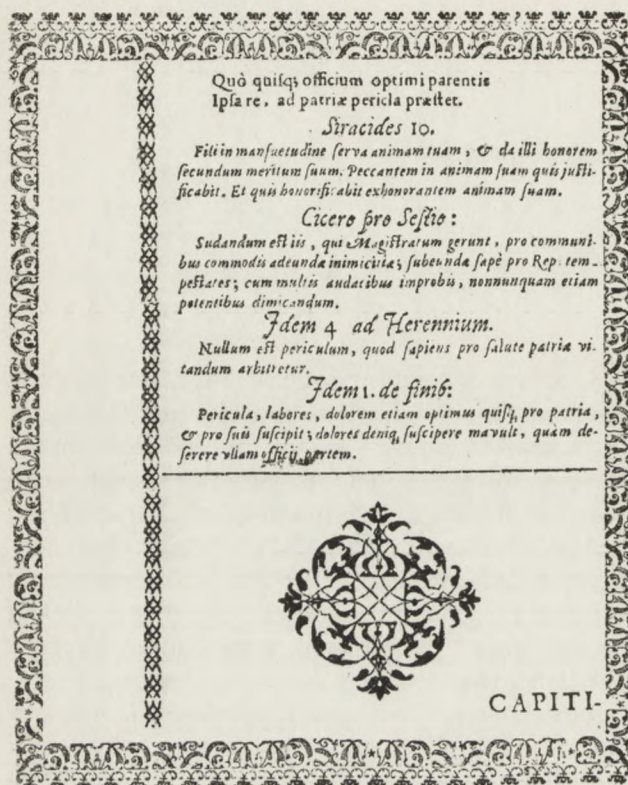 Quò quiſq; officium optimi parentis
Ipſa re, ad patriæ pericla præſtet.
Siracides 10.
Fili in manſuetudine ſerva animam tuam, & da illi honorem
ſecundum meritum ſuum. Peccantem in animam ſuam quis juſti-
ficabit. Et quis honorificabit exhonorantem animam ſuam.
Cicero pro Seſtio:
Sudandum eſt iis, qui Magiſtratum gerunt, pro communi-
bus commodis adeundæ inimicitiæ; ſubeundæ ſæpè pro Rep: tem-
peſtates; cum multis audacibus improbis, nonnunquam etiam
potentibus dimicandum.
Idem 4 ad Herennium.
Nullum eſt periculum, quod ſapiens pro ſalute patriæ vi-
tandum arbitretur.
Idem 1. de finib:
Pericula, labores, dolorem etiam optimus quiſq; pro patria,
& pro ſuis ſuſcipit; dolores deniq; ſuſcipere mavult, quàm de-
ſerere vllam officij partem.
CAPITI-